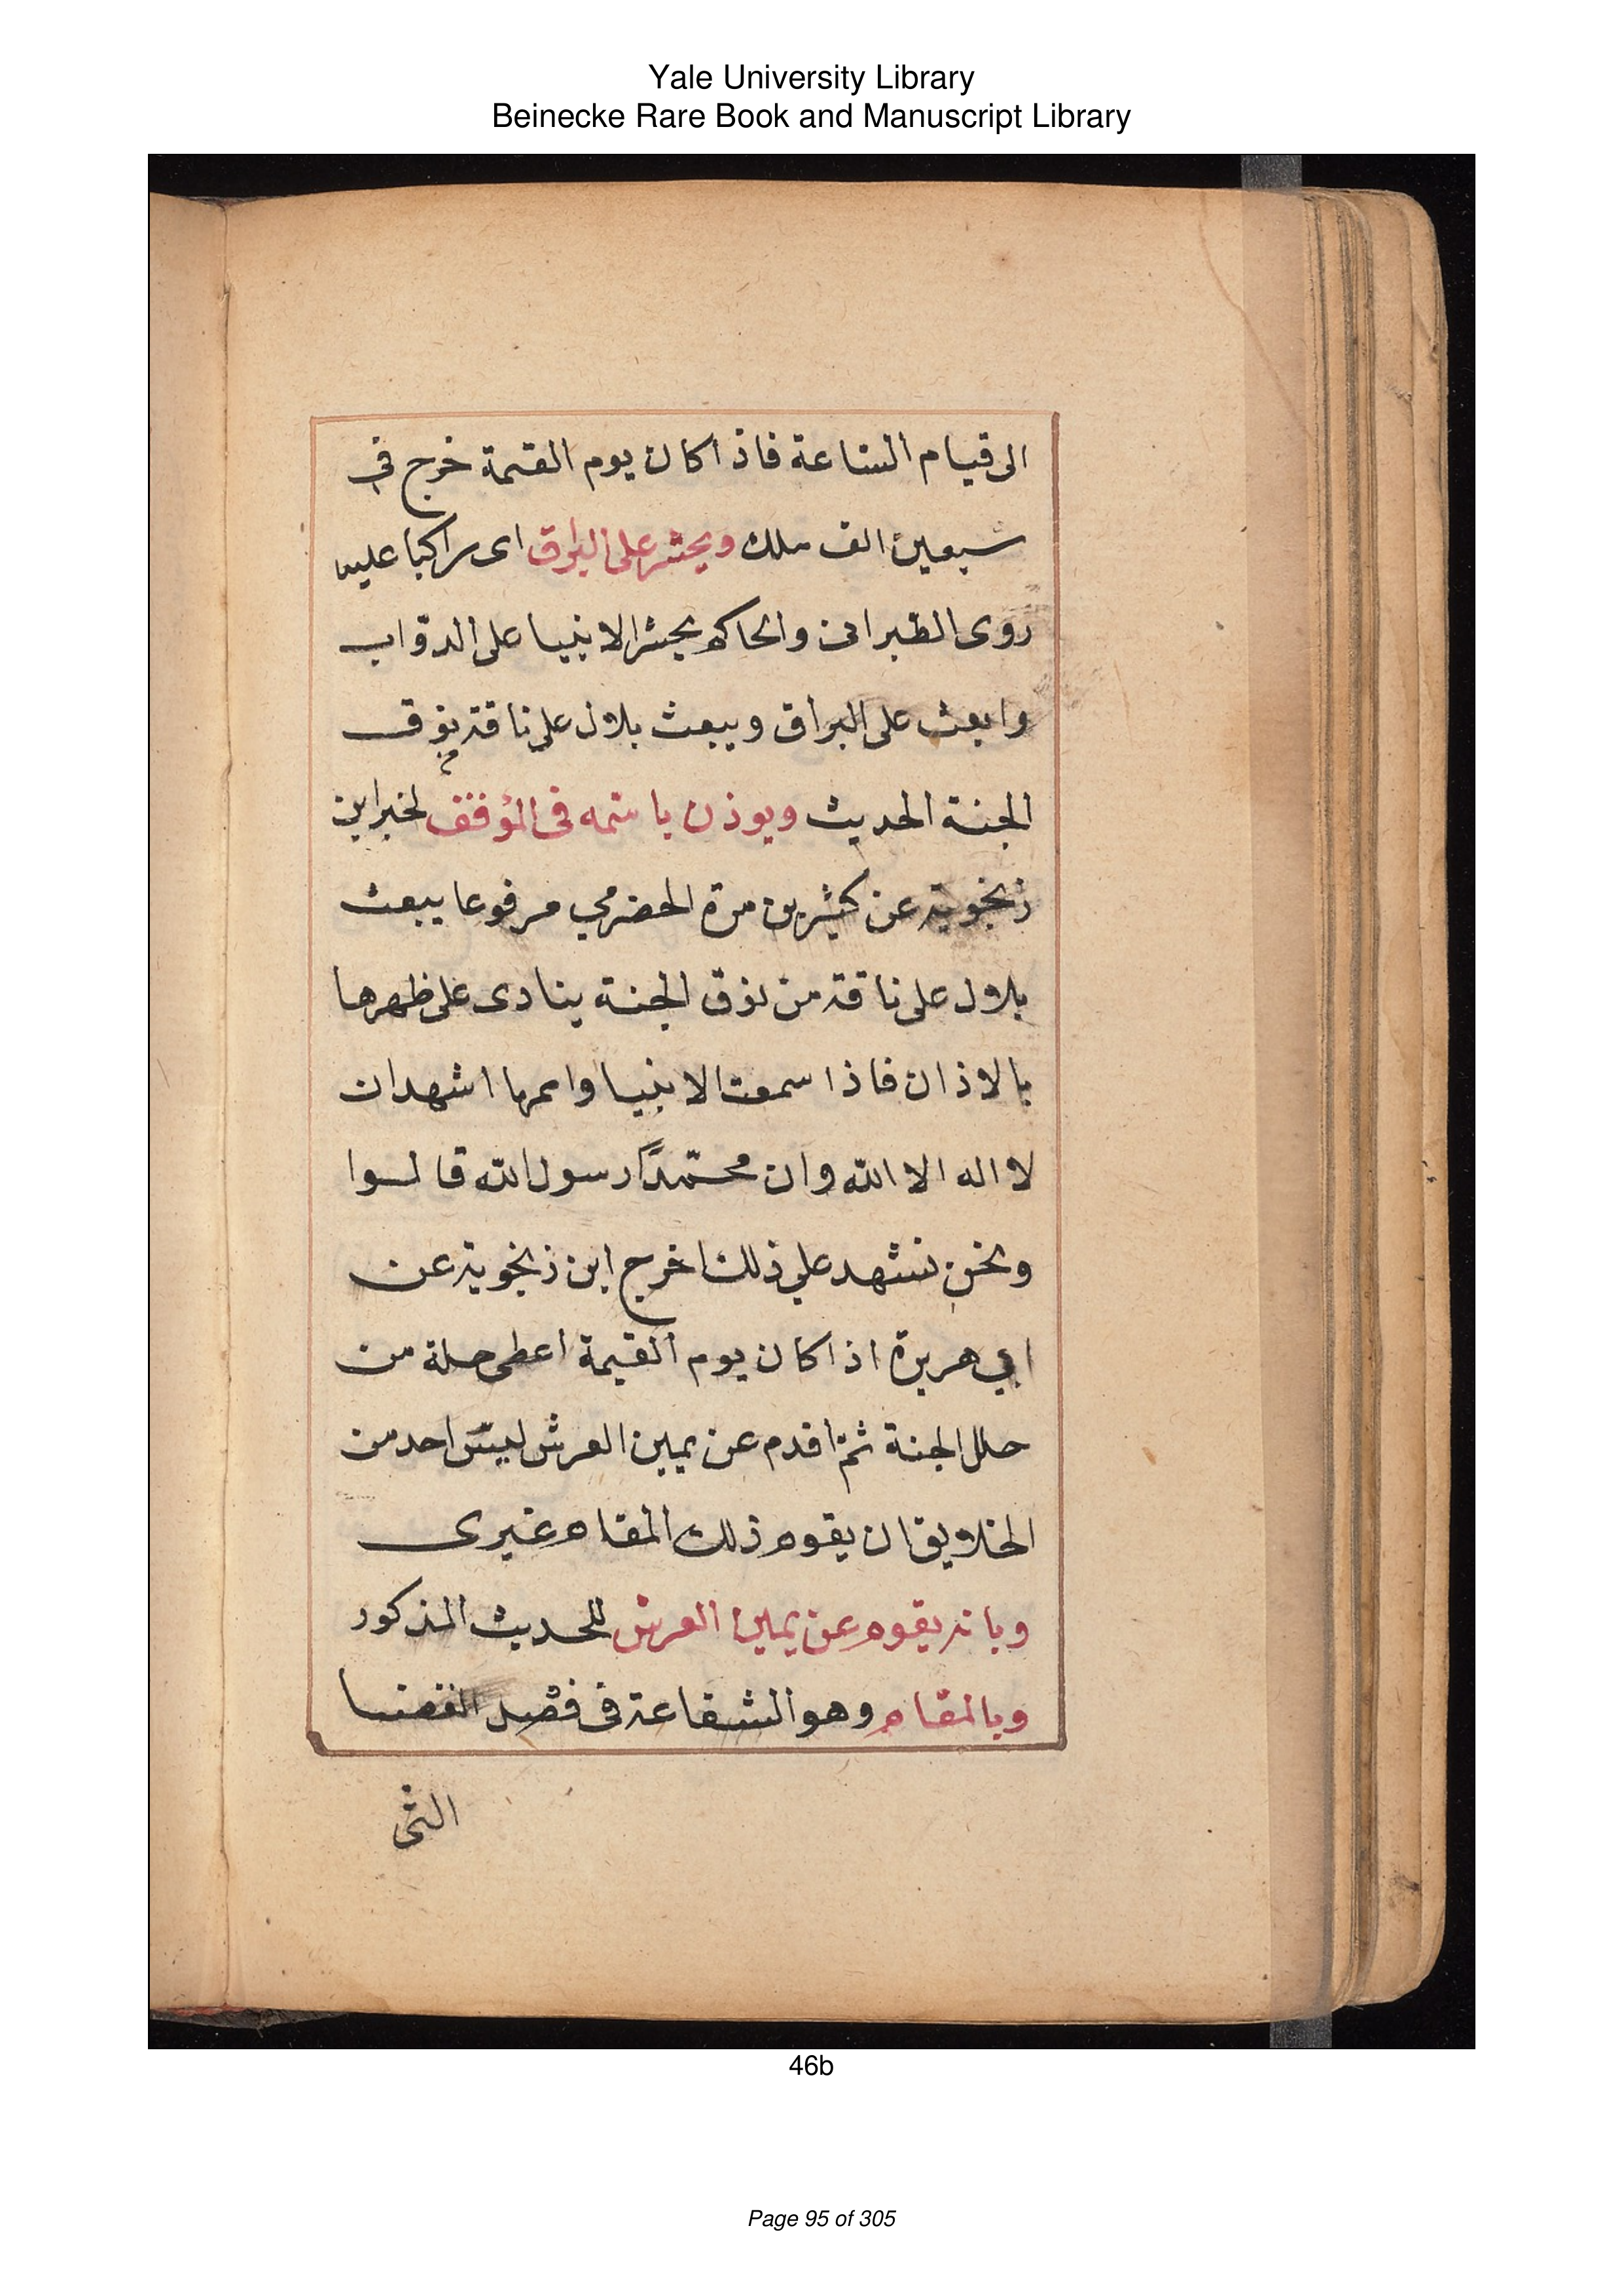 Yale University Library
Beinecke Rare Book and Manuscript Library
الى قيام الساعة فاذا كان يوم القيمة خرج في
سبعين الف ملك ويحشر على البراق اى راكبا عليه
روى الطبرانى والحاكم يحشر الانبيا على الدواب
وابعث على البراق ويبعث بلال على ناقة بنوق
الجنة الحديث ويوذن باسمه فى الموقف لخبر ابن
زنجوية عن كثير بن مرة الحضرمي مرفوعا يبعث
بلال على ناقة من نوق الجنة ينادى على ظهرها
بالاذان فاذا سمعت الانبيا واممها اشهد ان
لا اله الا الله وان محمّدًا رسول الله قالوا
ونحن نشهد علي ذلك اخرج ابن زنجوية عن
ابي هريرة اذا كان يوم القيمة اعطى حلة من
حلل الجنة ثم اقدم عن يمين العرش ليس احد من
الخلايق ان يقوم ذلك المقام غيرى
وبانه يقوم عن يمين العرش للحديث المذكور
وبالمقام وهو الشفاعة فى فصل القضا
التى
46b
Page 95 of 305